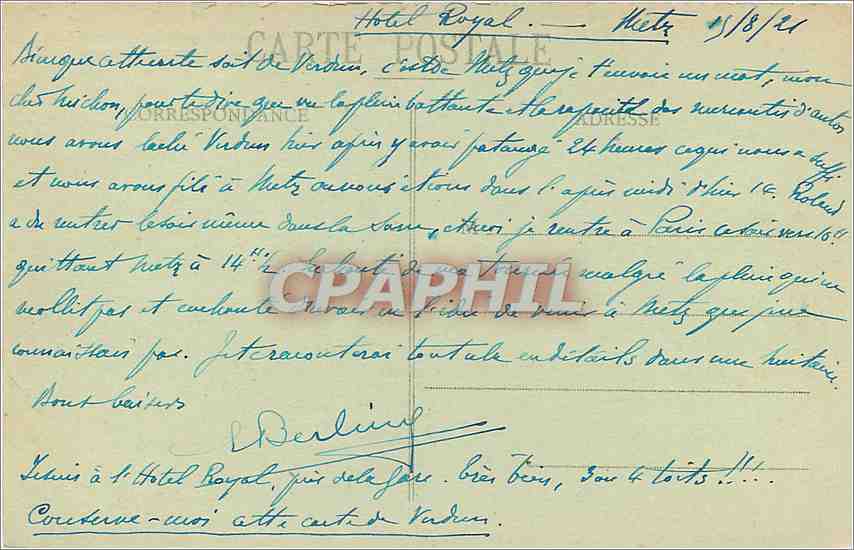 Hotel Royal. — Metz 15/8/21
CARTE POSTALE
Bien que cette carte soit de Verdun, c'est de Metz que je t'envoie un mot, mon
cher Michon, pour te dire que vu la pluie battante et la des d'autos
CORRESPONDANCE
ADRESSE
nous avons laché Verdun hier après y avoir patangé 24 heures ce qui nous a suffi
et nous avons filé à Metz ou nous étions dans l'après midi d'hier 14. Roland
a du rentrer le soir même dans la Sarre, et moi je rentre à Paris ce soir vers
quittant Metz à 14 H ½ de ma tournée malgré la pluie qui ne
mollit pas et enchanté d'avoir eu l'idée de venir à Metz que je ne
CPAPHIL
connaissais pas. Je te raconterai tout cela en détails dans une huitaine.
Bons baisers
Berline
Je suis à l'Hotel Royal, près de la gare. très bien, 3 ou 4 toits!!!!
Conserve-moi cette carte de Verdun.